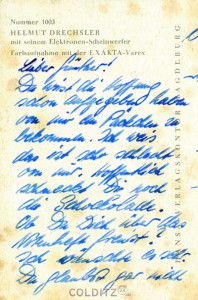 Nummer 1003
HELMUT DRECHSLER
mit seinem Elektronen-Scheinwerfer
Farbaufnahme mit der EXAKTA-Varex
Lieber Günther!
Du wirst die Hoffnung
schon aufgegeben haben
von mir ein Päckchen zu
bekommen. Ich weis
das ist sehr schlecht
von mir. Hoffentlich
schmeckt Dir noch
die Schokolade.
Ob Du Dich über das
freust?
Ich wünschte es sehr.
Du glaubst gar nicht
VERLAGSKONTOR MAGDEBURG
COLDITZ